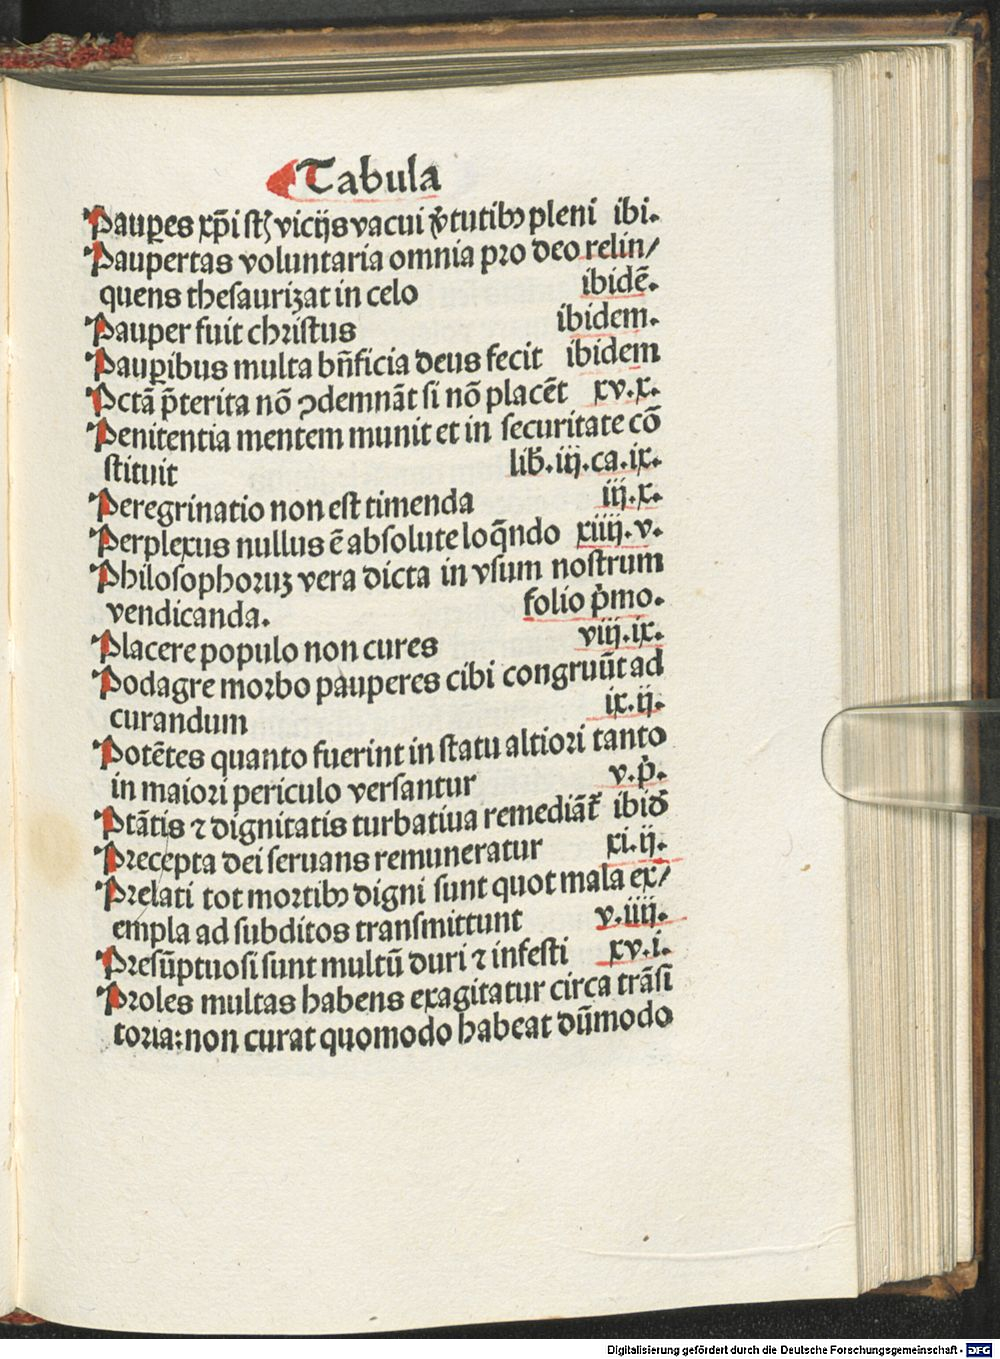 Tabula
Paup̲es xp̄i st̄ vicijs vacui v̓tutibꝰ pleni ibi.
Paupertas voluntaria omnia pro deo relin/
quens thesaurizat in celo ibidē.
Pauper fuit christus ibidem.
Paup̲ibus multa bn̄ficia deus fecit ibidem
Pctā p̄terita nō ꝯdemnāt si nō placēt xv.x.
Penitentia mentem munit et in securitate cō
stituit lib̓.iij.ca.ix.
Peregrinatio non est timenda iij.x.
Perplexus nullus ē absolute loq̄ndo xiiij.v.
Philosophoruꝫ vera dicta in vsum nostrum
vendicanda. folio p̓mo.
Placere populo non cures viij.ix.
Podagre morbo pauperes cibi congruūt ad
curandum ix.ij.
Potētes quanto fuerint in statu altiori tanto
in maiori periculo versantur v.p̓.
Ptātis ⁊ dignitatis turbatiua remediāt᷑ ibid̓
Precepta dei seruans remuneratur xi.ij.
Prelati tot mortibꝰ digni sunt quot mala ex/
empla ad subditos transmittunt v.iiij.
Presūptuosi sunt multū duri ⁊ infesti xv.i.
Proles multas habens exagitatur circa trāsi
toria: non curat quomodo habeat dūmodo
Digitalisierung gefördert durch die Deutsche Forschungsgemeinschaft - DFG